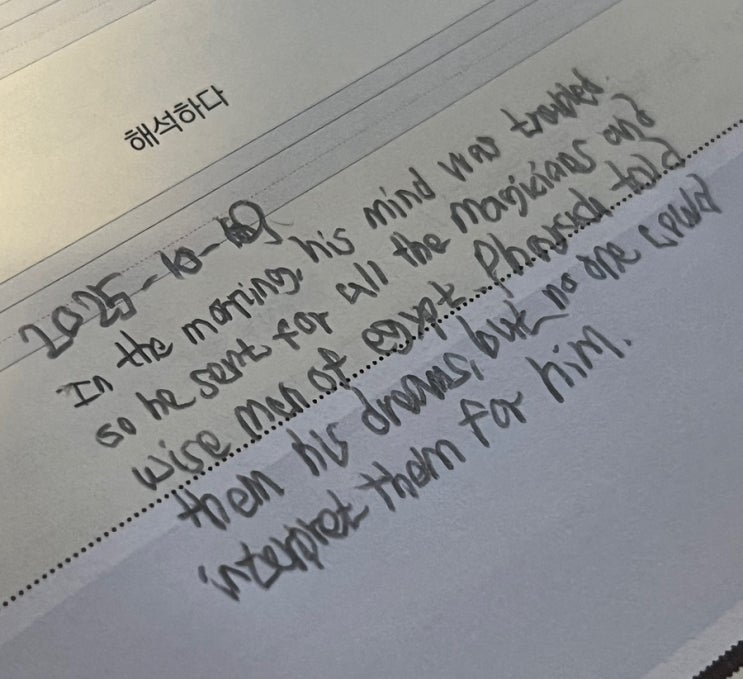 해석하다
2025-10-
In the morning, his mind was troubled
so he sent for all the magicians and
wise men of egypt. Pharaoh told
them his dreams, but no one could
interpret them for him.